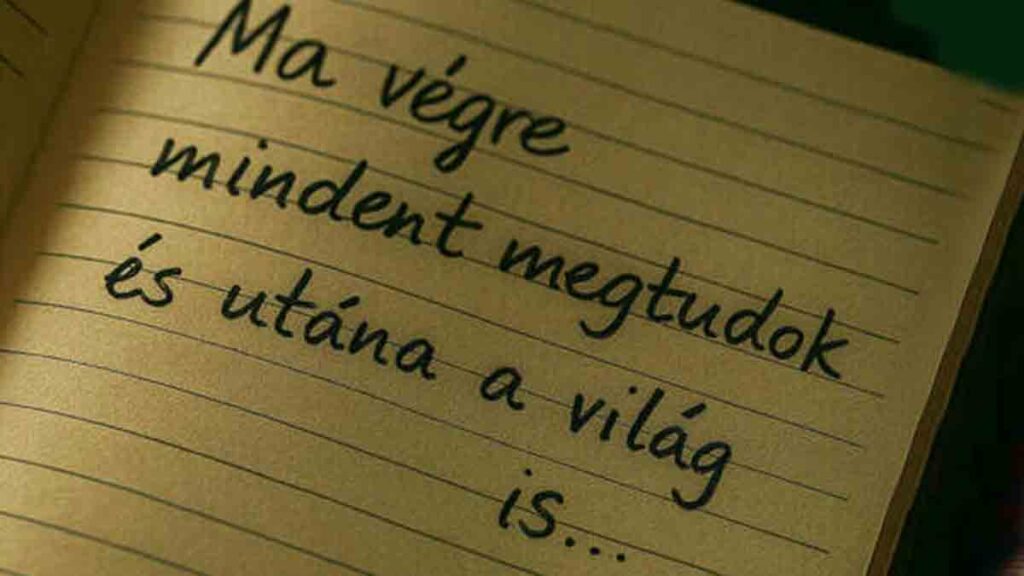 Ma végre
mindent megtudok
és utána a világ
is...